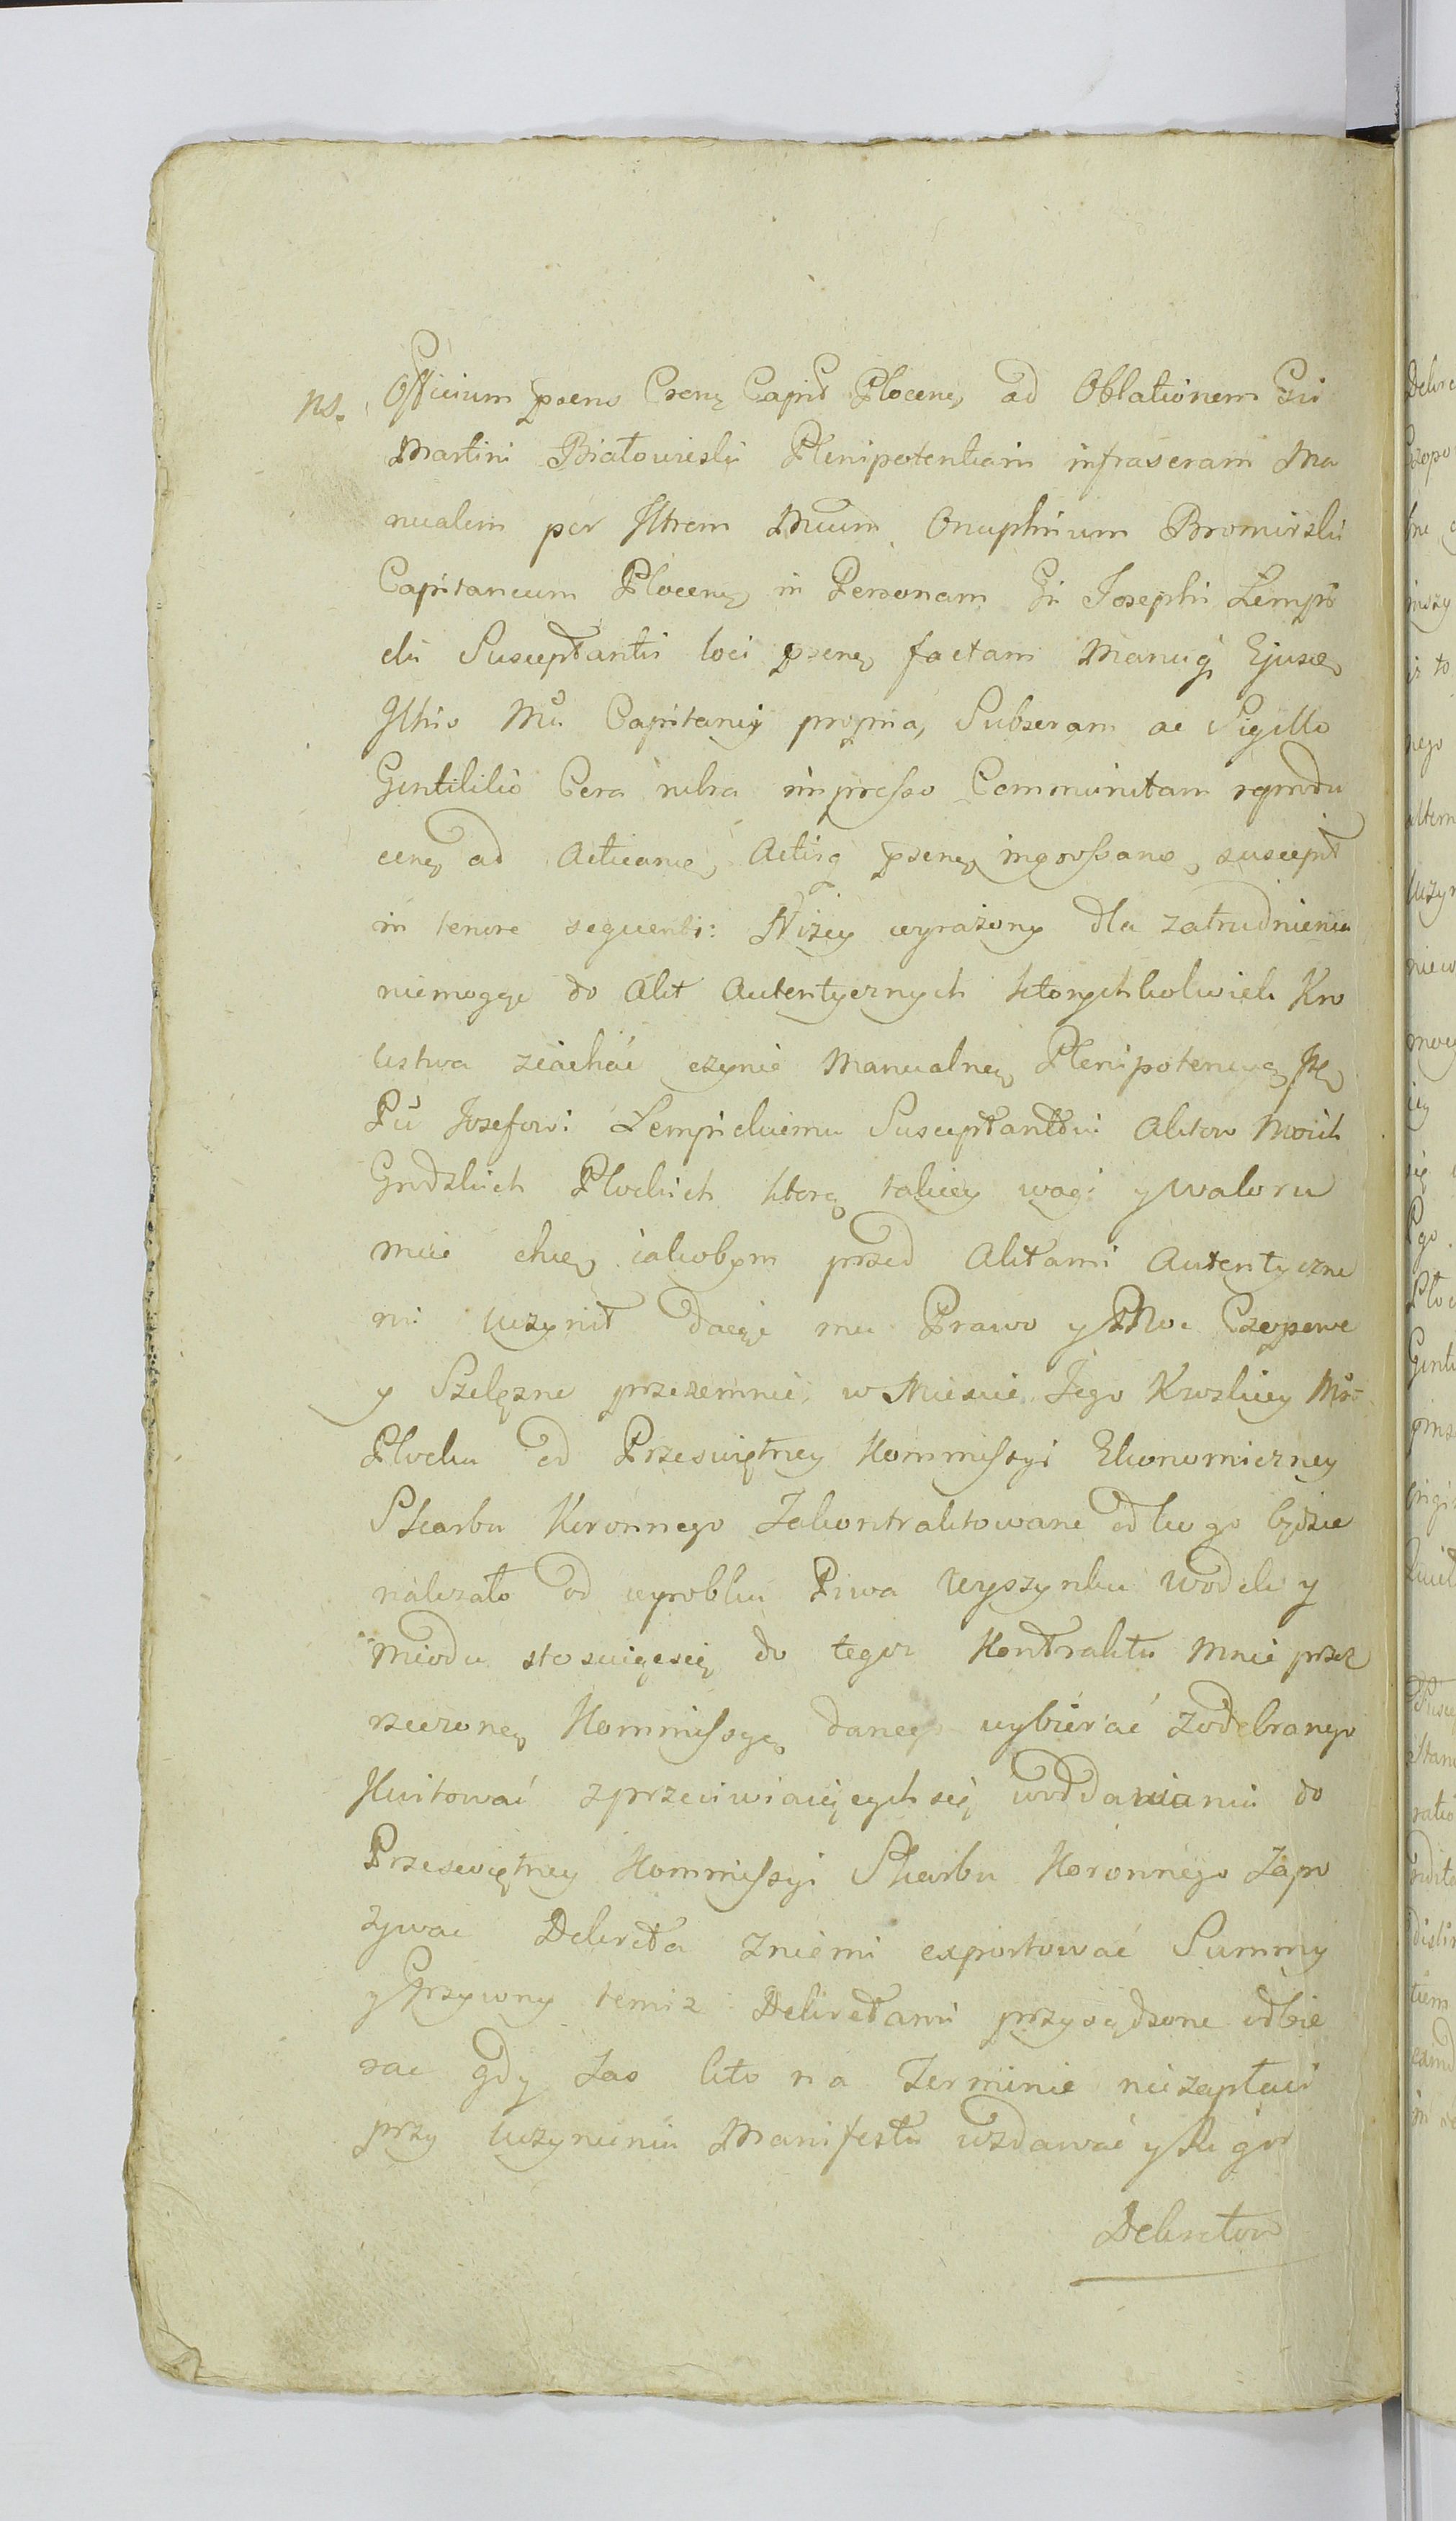 ns. Officium praens Crens Capit Plocens, ad Oblationem Gsi
Martini Białowieski Plenipotentiam infrascram Ma
nualem per Illrem Mcum Onuphrium Bromirski
Capitaneum Plocens in Personam Gi Josephi Łempi
cki Susceptantis loci praens factam Manuq Ejusd
Illris Mci Capitanei propria, Subscram ac Sigillo
Gentilitio Cera rubra impresso Communitam reprodu
cens ad Acticand, Actisq praens ingrossand, suscept
in tenore sequenti: Niżey wyrażony dla zatrudnienia
niemogąc do Akt Autentycznych ktorychkolwiek Kro
lestwa ziachać czynię Manualną Plenipotencyą
Pu Jozefowi Łempickiemu Susceptantowi Aktow Moich
Grodzkich Płockich ktorą takiey wagi y waloru
mieć chcę iakobym przed Aktami Autentyczne
mi uczynił daiąc mu Prawo y Moc Czopowe
y Szelężne przezemnie w Miescie Jego Krolskiey Mci
Płocku od Przeswiętney Kommissyi Ekonomiczney
Skarbu Koronnego Zakontraktowane od kogo będzie
należało od wyrobku Piwa Wyszynku Wodek y
Miodu stosuiącsię do tegoż Kontraktu Mnie przez
rzeczoną Kommissyą danego wybierać Zodebranego
Kwitować zprzeciwiaiących się woddawaniu do
Przeswiętney Kommissyi Skarbu Koronnego Zapo
zywac Dekreta Zniemi exportować Summy
y Grzywny temiz Dekretami przysądzone odbie
rac gdy Zas kto na Terminie niezapłaci
przy uczynieniu Manifestu wzdawać y Rigor
Dekretow